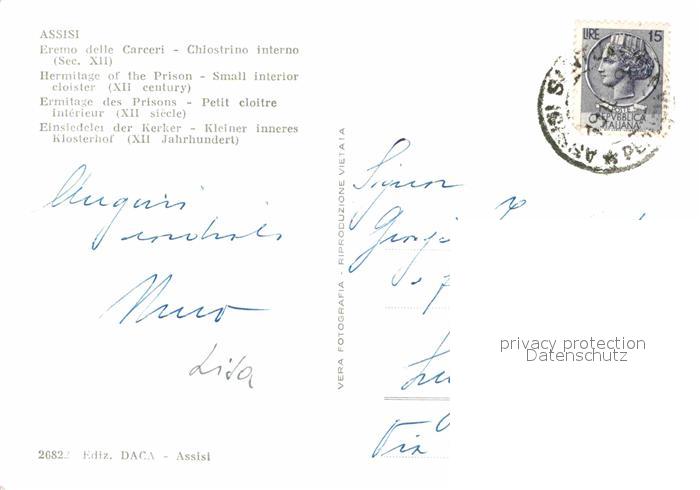 ASSISI
Eremo delle Carceri - Chiostrino interno
(Sec. XII)
Hermitage of the Prison - Small interior
cloister (XII century)
Ermitage des Prisons - Petit cloitre
intérieur (XII siècle)
Einsiedelei der Kerker - Kleiner inneres
Klosterhof (XII Jahrhundert)
Auguri
cordiali
Lisa
2682 Ediz. DACA - Assisi
VERA FOTOGRAFIA - RIPRODUZIONE VIETATA
LIRE 15
POSTE
REPVBBLICA
ITALIANA
ASSISI
Signor
Via
privacy protection
Datenschutz